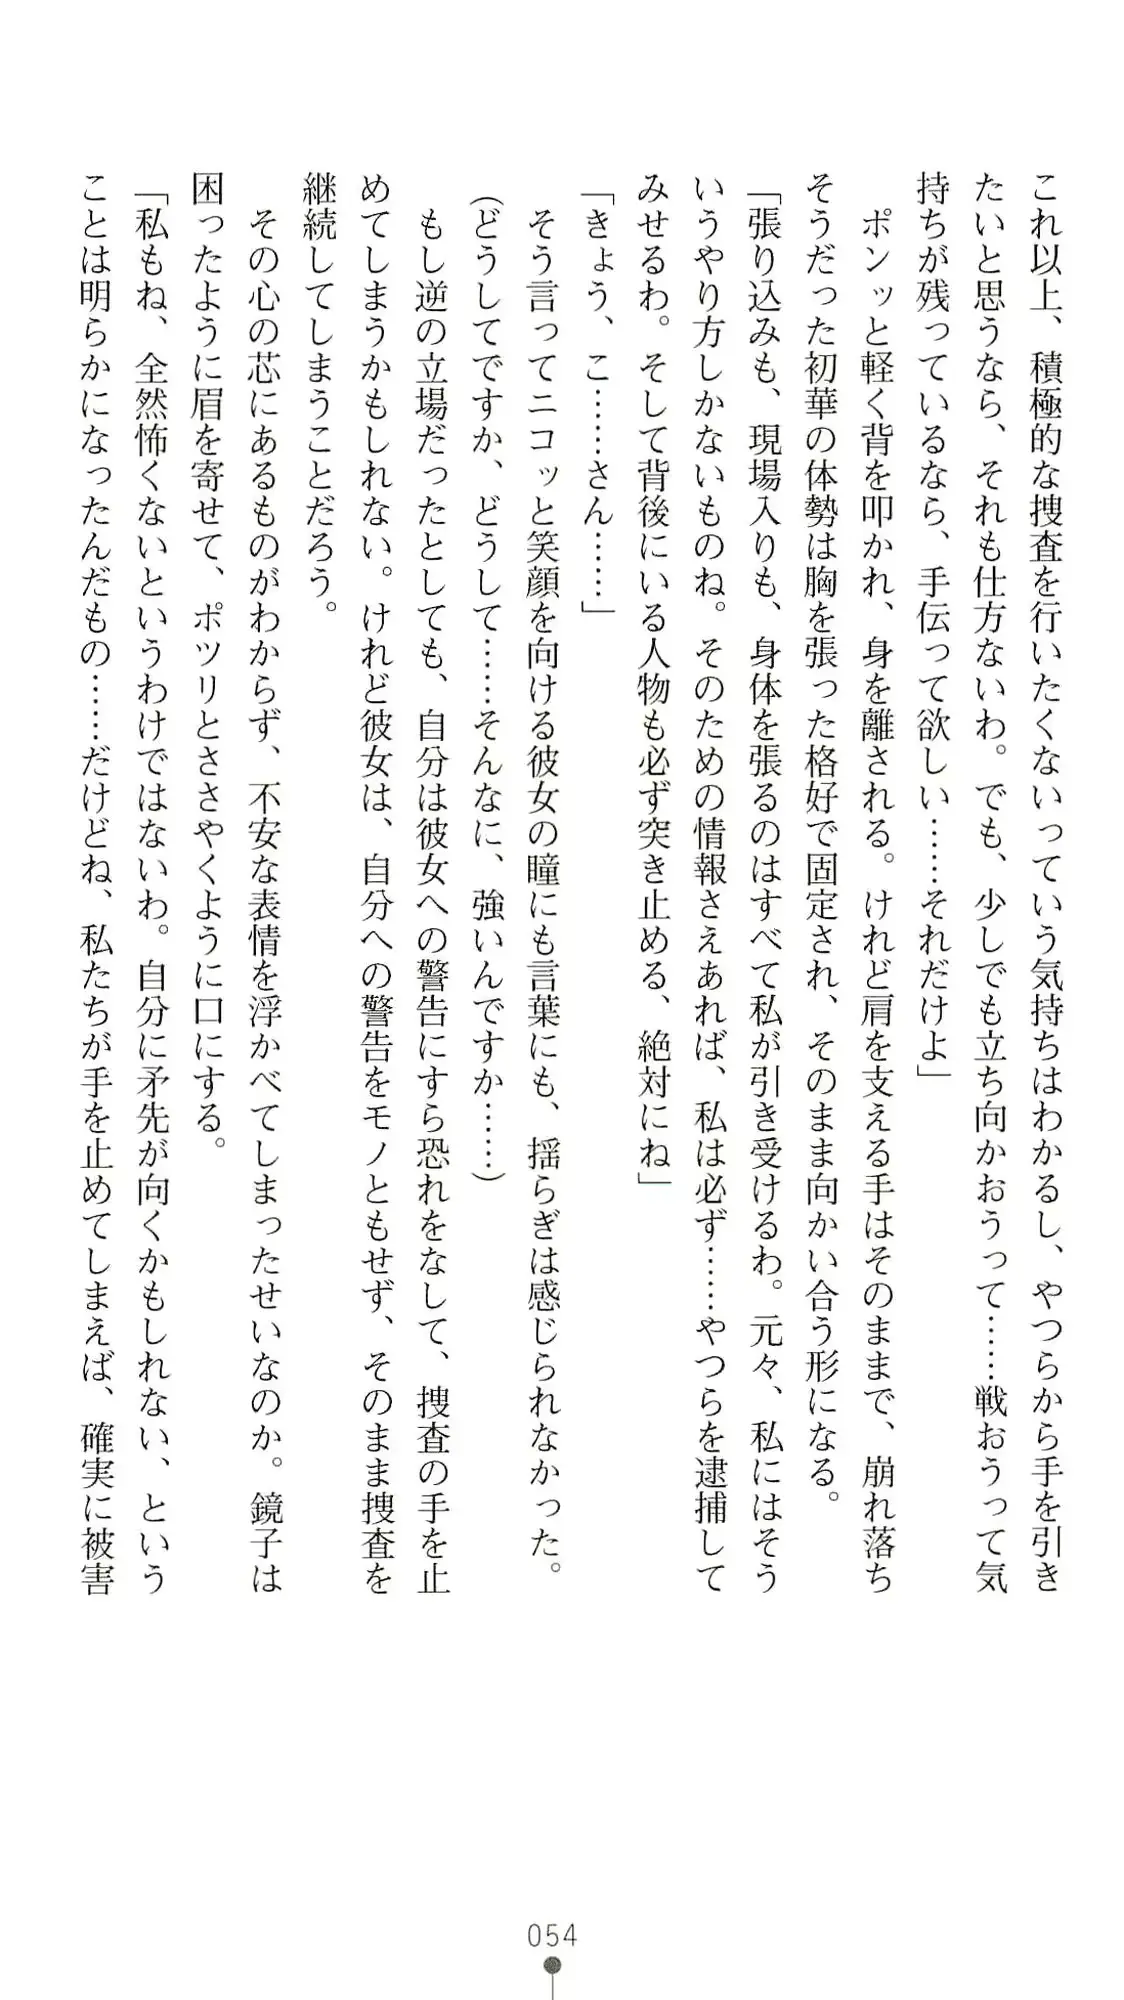 これ以上、積極的な捜査を行いたくないっていう気持ちはわかるし、やつらから手を引き
たいと思うなら、それも仕方ないわ。でも、少しでも立ち向かおうって……戦おうって気
持ちが残っているなら、手伝って欲しい……それだけよ」
　ポンッと軽く背を叩かれ、身を離される。けれど肩を支える手はそのままで、崩れ落ち
そうだった初華の体勢は胸を張った格好で固定され、そのまま向かい合う形になる。
「張り込みも、現場入りも、身体を張るのはすべて私が引き受けるわ。元々、私にはそう
いうやり方しかないものね。そのための情報さえあれば、私は必ず……やつらを逮捕して
みせるわ。そして背後にいる人物も必ず突き止める、絶対にね」
「きょう、こ……さん……」
　そう言ってニコッと笑顔を向ける彼女の瞳にも言葉にも、揺らぎは感じられなかった。
(どうしてですか、どうして……そんなに、強いんですか……)
　もし逆の立場だったとしても、自分は彼女への警告にすら恐れをなして、捜査の手を止
めてしまうかもしれない。けれど彼女は、自分への警告をモノともせず、そのまま捜査を
継続してしまうことだろう。
　その心の芯にあるものがわからず、不安な表情を浮かべてしまったせいなのか。鏡子は
困ったように眉を寄せて、ポツリとささやくように口にする。
「私もね、全然怖くないというわけではないわ。自分に矛先が向くかもしれない、という
ことは明らかになったんだもの……だけどね、私たちが手を止めてしまえば、確実に被害
054